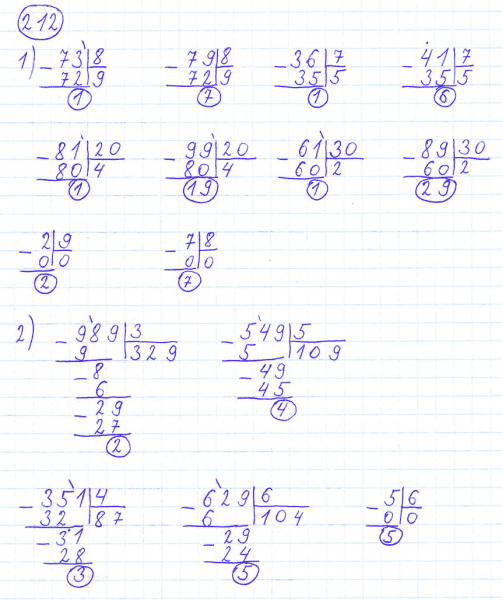 212
1) - 73 | 8 - 79 | 8 - 36 | 7 - 41 | 7
72 | 9 72 | 9 35 | 5 35 | 5
1 7 1 6
- 81 | 20 - 99 | 20 - 61 | 30 - 89 | 30
80 | 4 80 | 4 60 | 2 60 | 2
1 19 1 29
- 2 | 9 - 7 | 8
0 | 0 0 | 0
2 7
2) - 989 | 3 - 549 | 5
9 | 329 5 | 109
- 8 - 49
6 45
- 29 4
27
2
- 351 | 4 - 629 | 6 - 5 | 6
32 | 87 6 | 104 0 | 0
- 31 - 29 5
28 24
3 5